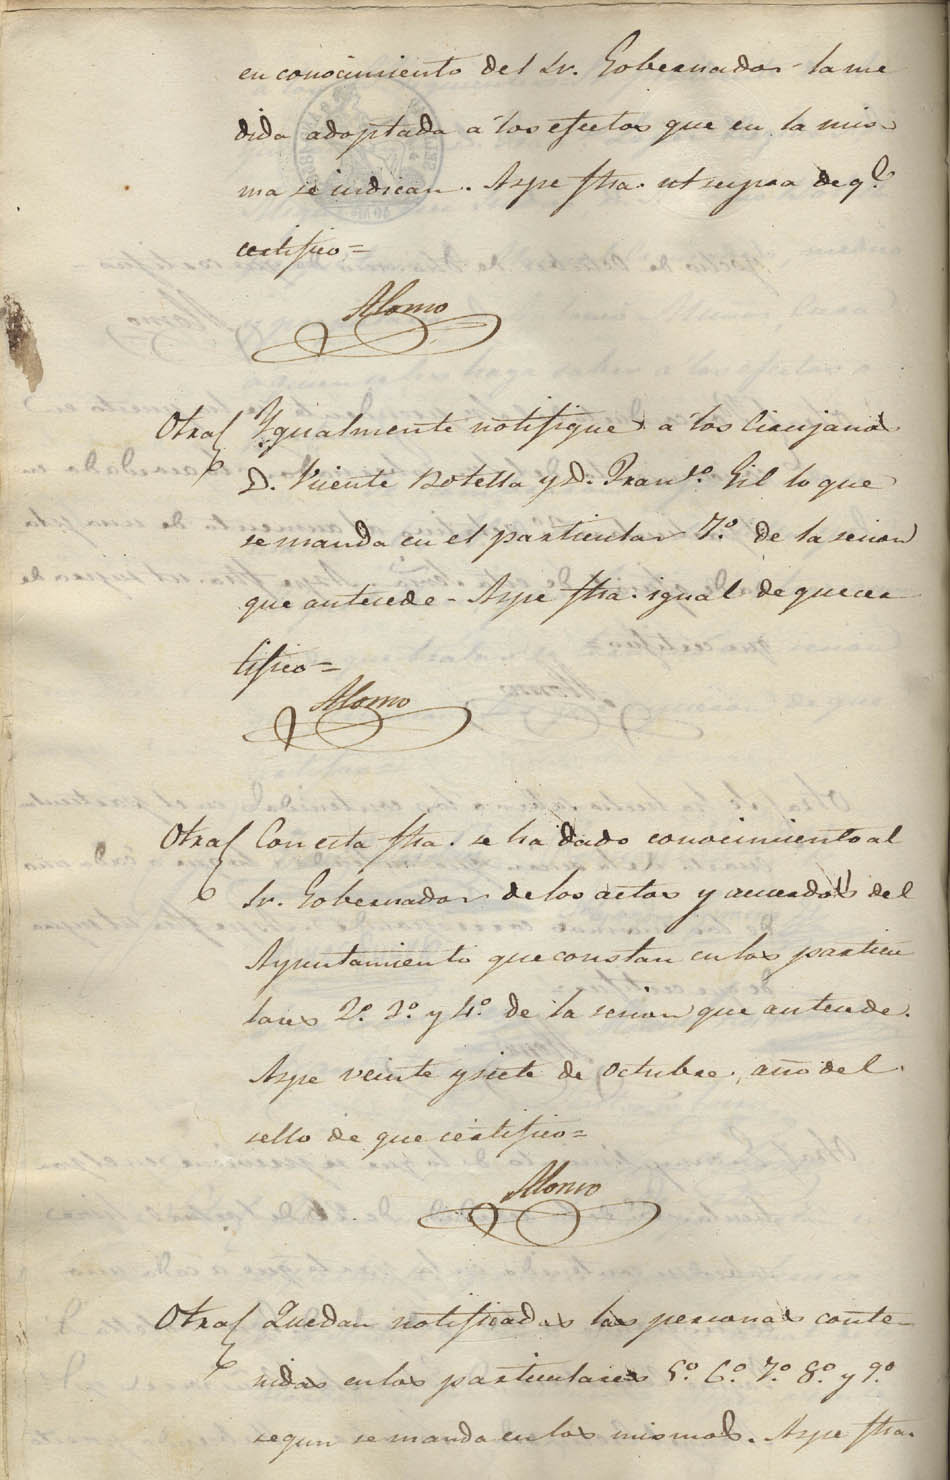 en conocimiento del Sr. Gobernador la me
dida adoptada a los efectos que en la mis
ma se indican. Aspe fha. ut supra de q.e
certifico=
Alonso
Otra Ygualmente notifique a los Cirujanos
D. Vicente Botella y D. Fran.co Gil lo que
se manda en el particular 7.o de la sesion
que antecede - Aspe fha. igual de que cer
tifico=
Alonso
Otra Con esta fha. se ha dado conocimiento al
Sr. Gobernador de los actos y acuerdos del
Ayuntamiento que constan en los particu
lares 2.o 3.o y 4.o de la sesion que antecede.
Aspe veinte y siete de Octubre, año del
sello de que certifico=
Alonso
Otra Quedan notificadas las personas conte
nidas en los particulares 5.o 6.o 7.o 8.o y 9.o
segun se manda en los mismos. Aspe fha.